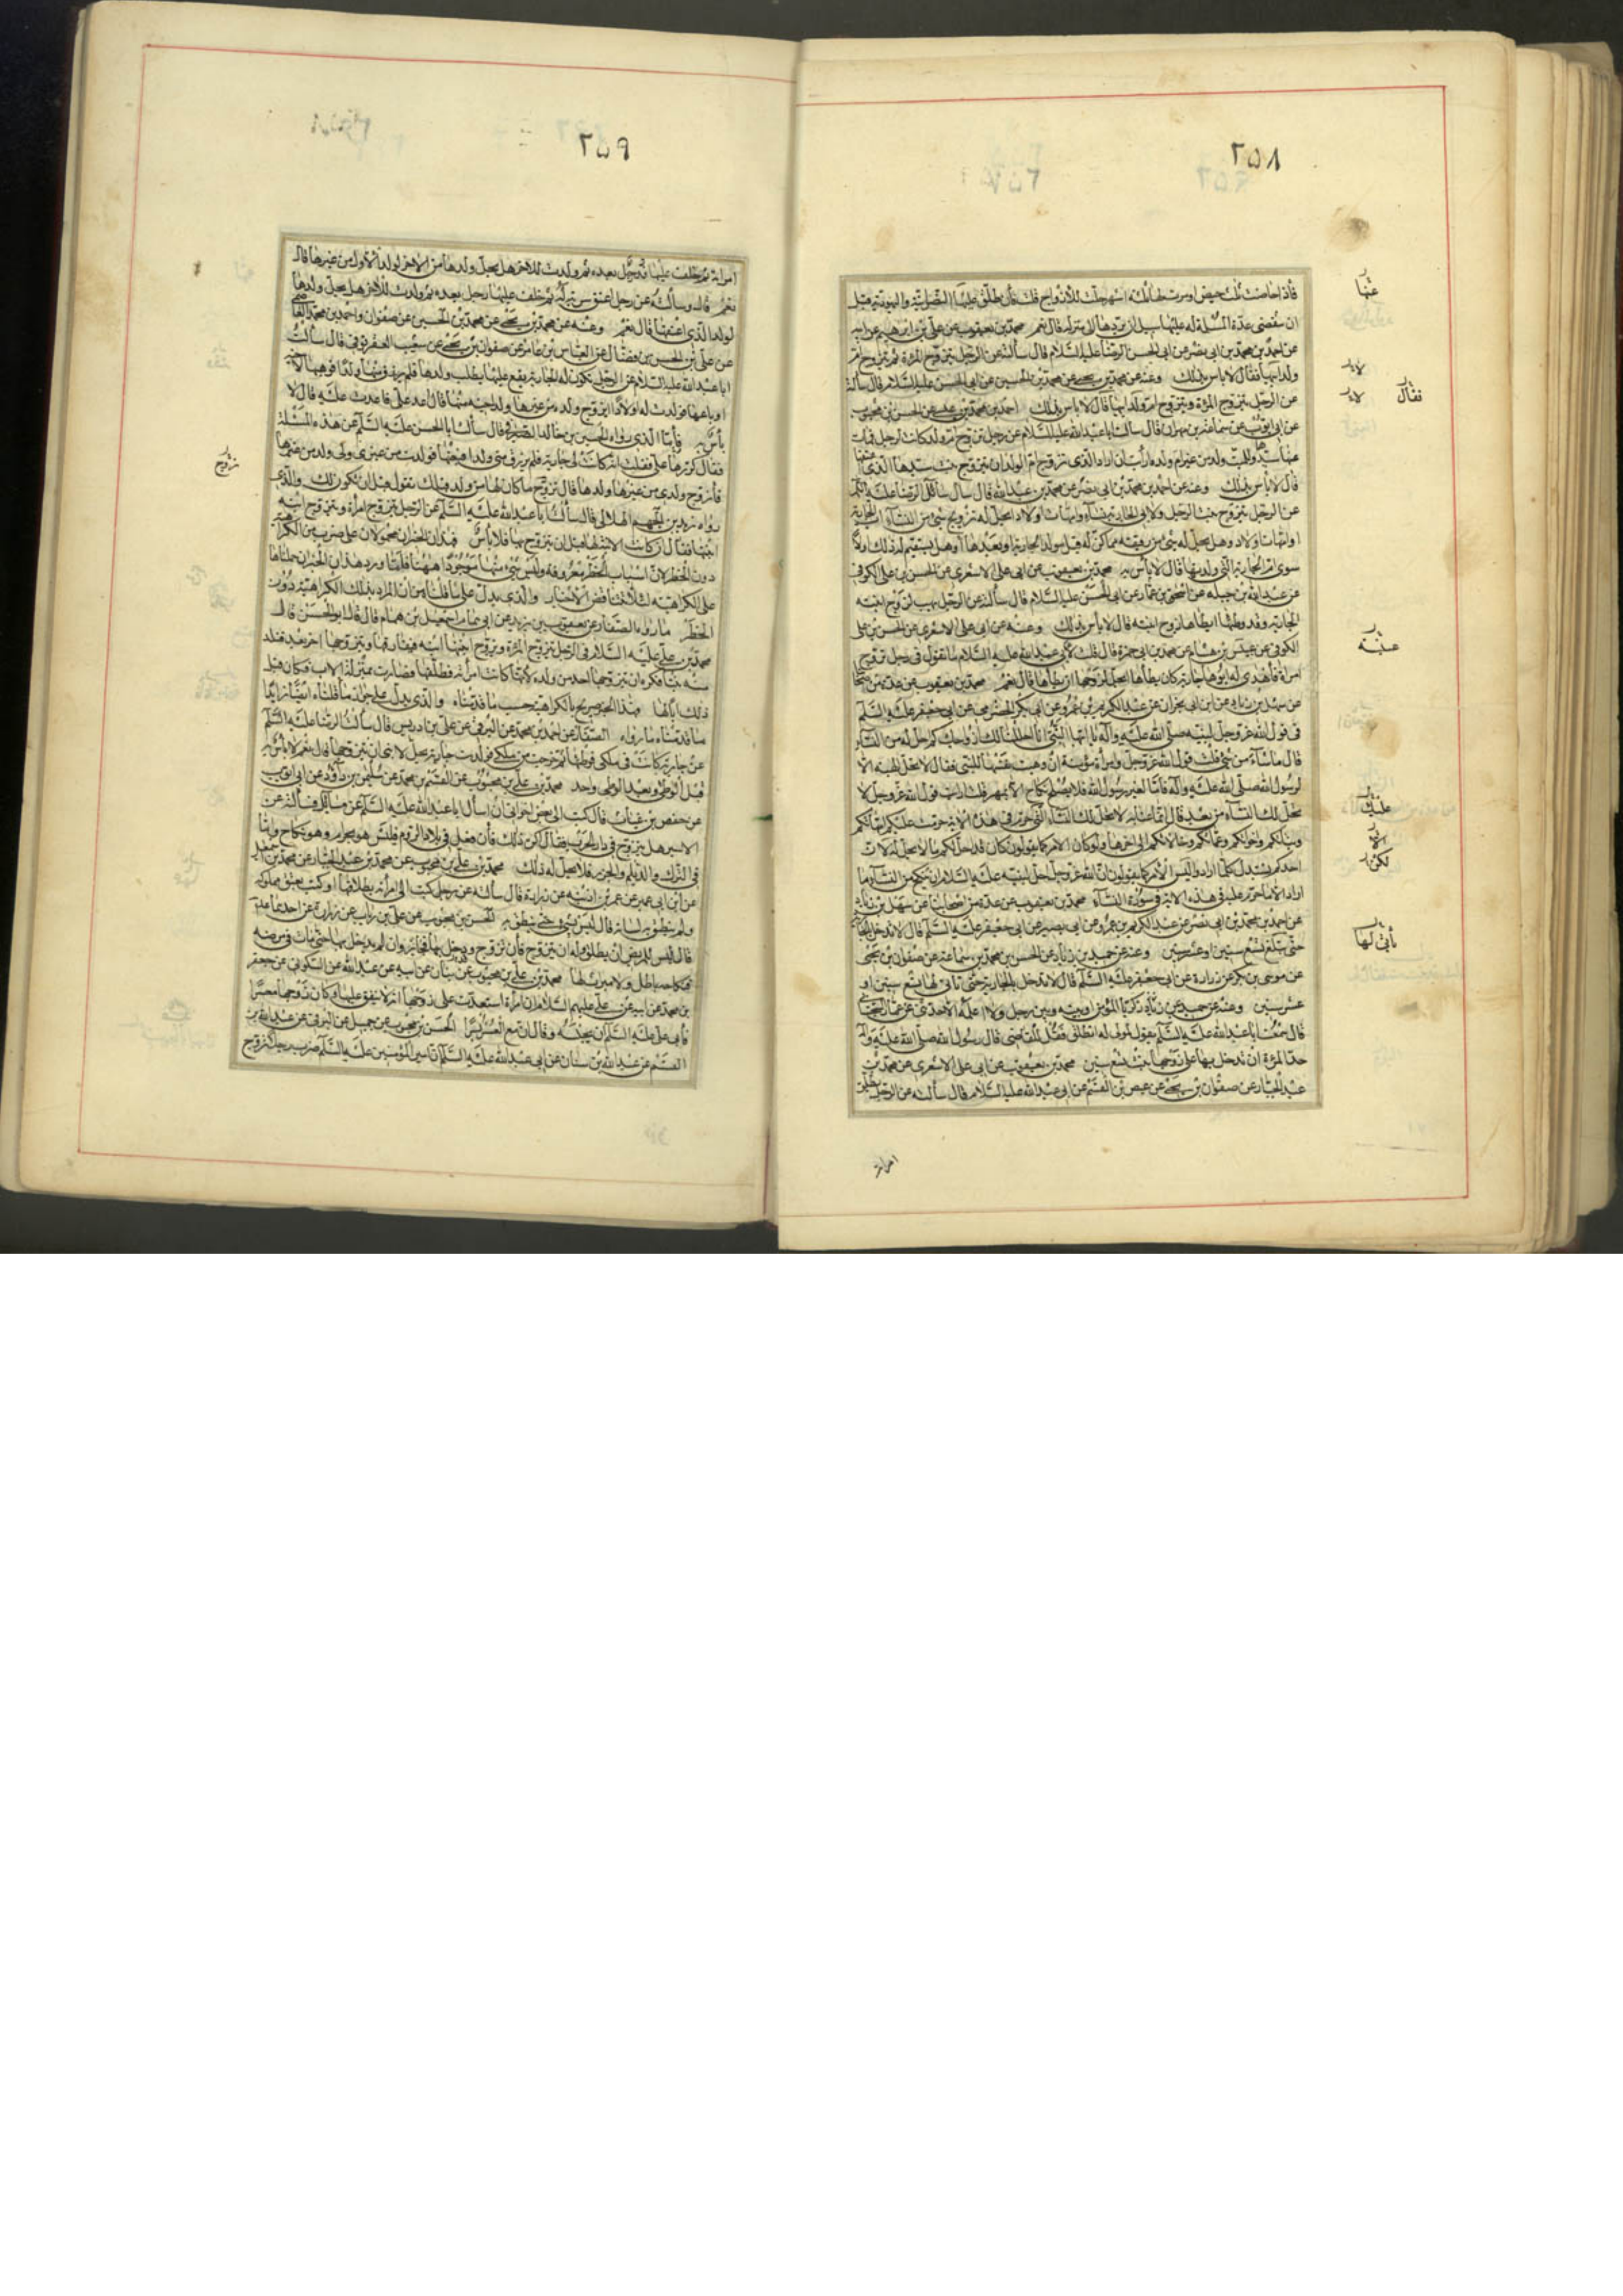 ٢٥٨
فاذا حاضت ثلث حيض او مرت لها ثلثة اشهر حلت للازواج قلت فان طلق عليها النصرانية واليهودية قبل
ان تنقضي عدة المسلمة له عليها سبيل ان يردها الى منزله قال نعم محمد بن يعقوب عن علي بن ابرهيم عن ابيه
عن احمد بن محمد بن ابي نصر عن ابي الحسن الرضا عليه السلام قال سألته عن الرجل يتزوج المرأة ويتزوج ام
ولد ابيها فقال لا باس بذلك وعنه عن محمد بن يحيى عن محمد بن الحسين عن ابي الحسن عليه السلام قال سألته
عن الرجل يتزوج المرأة ويتزوج ام ولد ابيها قال لا باس بذلك احمد بن محمد بن عن الحسن بن محبوب
عن ابي ايوب عن سماعة بن مهران قال سألت ابا عبد الله عليه السلام عن رجل تزوج ام ولد كانت لرجل فمات
عنها سيدها وللميت ولد من غير ام ولده ارأيت ان اراد الذي تزوج ام الولد ان يتزوج بنت سيدها الذي
قال لا بأس بذلك وعنه عن احمد بن محمد بن ابي نصر عن محمد بن عبد الله قال سأل سائل الرضا عليه السلم
عن الرجل يتزوج بنت الرجل ولابي الجارية نساء وامهات اولاد ايحل له تزويج شئ من النساء اب الجارية
او امهات اولاد وهل يحل له شئ من رقيقه مما كن له قبل مولد الجارية او بعدها او هل يستقيم له ذلك
سوى ام الجارية التي ولدتها قال لا بأس به محمد بن يعقوب عن ابي علي الاشعري عن الحسن بن علي الكوفي
عن عبد الله بن جبلة عن اسحق بن عمار عن ابي الحسن عليه السلام قال سألته عن الرجل يهب لزوج ابنته
الجارية وقد وطئها ايطأها زوج ابنته قال لا بأس بذلك وعنه عن ابي علي الاشعري عن الحسن بن علي
الكوفي عن عبيس بن هشام عن محمد بن ابي حمزة قال قلت لابي عبد الله عليه السلام ما تقول في رجل تزوج
امرأة فأهدى له ابوها جارية كان يطأها ايحل لزوجها ان يطأها قال نعم محمد بن يعقوب عن عدة من اصحابنا
عن سهل بن زياد عن ابن ابي نجران عن عبد الكريم بن عمرو عن ابي بكر الحضرمي عن ابي جعفر عليه السلم
في قول الله عز وجل لنبيه صلى الله عليه وآله يا ايها النبي انا احللنا لك ازواجك كم احل له من النساء
قال ما شاء من شئ قلت قول الله عز وجل وامرأة مؤمنة ان وهبت نفسها للنبي فقال لا تحل الهبة الا
لرسول الله صلى الله عليه وآله فاما لغير رسول الله فلا يصلح نكاح الا بمهر قلت ارأيت قول الله عز وجل لا
يحل لك النساء من بعد قال انما عنى به لا يحل لك النساء التي حرم في هذه الاية حرمت عليكم امهاتكم
وبناتكم واخواتكم وعماتكم وخالاتكم الى اخرها ولو كان الامر كما يقولون كان قد احل لكم ما لا يحل له لان
احدكم يستبدل كلما اراد وليس الامر كما يقولون ان الله عز وجل احل لنبيه عليه السلام ان ينكح من النساء ما
اراد الا ما حرم عليه في هذه الاية في سورة النساء محمد بن يعقوب عن عدة من اصحابنا عن سهل بن زياد
عن احمد بن محمد بن ابي نصر عن عبد الكريم بن عمرو عن ابي بصير عن ابي جعفر عليه السلم قال لا تدخل بالجارية
حتى يبلغ تسع سنين او عشر سنين وعنه عن حميد بن زياد عن الحسن بن محمد بن سماعة عن صفوان بن يحيى
عن موسى بن بكر عن زرارة عن ابي جعفر عليه السلم قال لا تدخل بالجارية حتى تاتي لها تسع سنين او
عشر سنين وعنه عن حميد بن زياد عن زكريا المؤمن او بينه وبين رجل ولا اعلمه الا حدثني عن عمار السجستاني
قال سمعت ابا عبد الله عليه السلم يقول لمولى له انطلق فقل للقاضي قال رسول الله صلى الله عليه وآله
حد المرأة ان تدخل بها على زوجها بنت تسع سنين محمد بن يعقوب عن ابي علي الاشعري عن محمد بن
عبد الجبار عن صفوان بن يحيى عن عيص بن القسم عن ابي عبد الله عليه السلام قال سألته عن الرجل يطلق
امراته
عنها
فقال
عليك
تأتي لها
٢٥٩
امرأته ثم خلف عليها رجل بعده ثم ولدت للاخر هل يحل ولدها من الاخر لولد الاول من غيرها قال
نعم قال وسألته عن رجل اعتق سرية له ثم خلف عليها رجل بعده ثم ولدت للاخر هل يحل ولدها
لولد الذي اعتقها قال نعم وعنه عن محمد بن يحيى عن محمد بن الحسين عن صفوان واحمد بن محمد العاصمي
عن علي بن الحسن بن فضال عن العباس بن عامر عن صفوان بن يحيى عن شعيب العقرقوفي قال سألت
ابا عبد الله عليه السلام عن الرجل يكون له الجارية يقع عليها يطلب ولدها فلم يرزق منها ولدا فوهبها لاخيه
او باعها فولدت له اولادا ايزوج ولده من غيرها ولد اخيه منها قال اعد علي فاعدت عليه قال لا
بأس به فأما الذي رواه الحسين بن خالد الصيرفي قال سألت ابا الحسن عليه السلم عن هذه المسئلة
فقال كررها علي فقلت انه كانت لي جارية فلم يرزق مني ولدا فبعتها فولدت من غيري ولي ولد من غيرها
فأزوج ولدي من غيرها ولدها قال تزوج ما كان لها من ولد قبلك يقول قبل ان يكون لك والذي
رواه زيد بن الجهم الهلالي قال سألت ابا عبد الله عليه السلم عن الرجل يتزوج امرأة ويتزوج ابنه
ابنتها فقال ان كانت الابنة لها قبل ان يتزوج بها فلا بأس فهذان الخبران محمولان على ضرب من الكراهية
دون الحظر لان اسباب الحظر معروفة وليس شئ منها موجودا ههنا فلما ورد هذان الخبران حملناها
على الكراهية لئلا تتناقض الاخبار والذي يدل على ما قلناه من ان المراد بذلك الكراهية دون
الحظر ما رواه الصفار عن يعقوب بن يزيد عن ابي همام اسمعيل بن همام قال قال ابو الحسن قال
محمد بن علي عليه السلام في الرجل يتزوج المرأة ويزوج ابنتها ابنه فيفارقها ويتزوجها اخر بعد فتلد
منه بنتا فكره ان يتزوجها احد من ولده لانها كانت امرأته فطلقها فصارت بمنزلة الاب وكان قبل
ذلك ابا لها فهذا الخبر صريح بالكراهية حسب ما قدمناه والذي يدل على جواز ما قلناه ايضا زائدا
ما قدمناه ما رواه الصفار عن احمد بن محمد عن البرقي عن علي بن ادريس قال سألت الرضا عليه السلم
عن جارية كانت في ملكي فوطئتها ثم خرجت من ملكي فولدت جارية يحل لابني ان يتزوجها قال نعم لا بأس به
قبل الوطئ وبعد الوطئ واحد محمد بن علي بن محبوب عن القسم بن محمد عن سليمن بن داود عن ابي ايوب
عن حفص بن غياث قال كتب الي بعض اخواني ان اسأل ابا عبد الله عليه السلم عن مسائل فسألته عن
الاسير هل يتزوج في دار الحرب فقال اكره ذلك فان فعل في بلاد الروم فليس هو بحرام وهو نكاح واما
في الترك والديلم والخزر فلا يحل له ذلك محمد بن علي بن محبوب عن محمد بن عبد الجبار عن محمد بن اسمعيل
عن ابن ابي عمير عن عمر بن اذينة عن زرارة قال سألته عن رجل كتب الى امرأته بطلاقها او كتب بعتق مملوكه
ولم ينطق به لسانه قال ليس بشئ حتى ينطق به الحسن بن محبوب عن علي بن رئاب عن زرارة عن احدهما
قال ليس للمريض ان يطلق وله ان يتزوج فان تزوج ودخل بها فجائز وان لم يدخل بها حتى مات في مرضه
فنكاحه باطل ولا ميراث لها محمد بن علي بن محبوب عن بنان عن ابيه عن عبد الله عن السكوني عن جعفر
بن محمد عن ابيه عن علي عليهم السلام ان امرأة استعدت على زوجها انه لا ينفق عليها وكان زوجها معسرا
فأبى علي عليه السلم ان يحبسه وقال ان مع العسر يسرا الحسن بن محبوب عن جميل عن البرقي عن عبد الله بن
القسم عن عبد الله بن سنان عن ابي عبد الله عليه السلم ان امير المؤمنين عليه السلم ضرب رجلا تزوج
تزوج